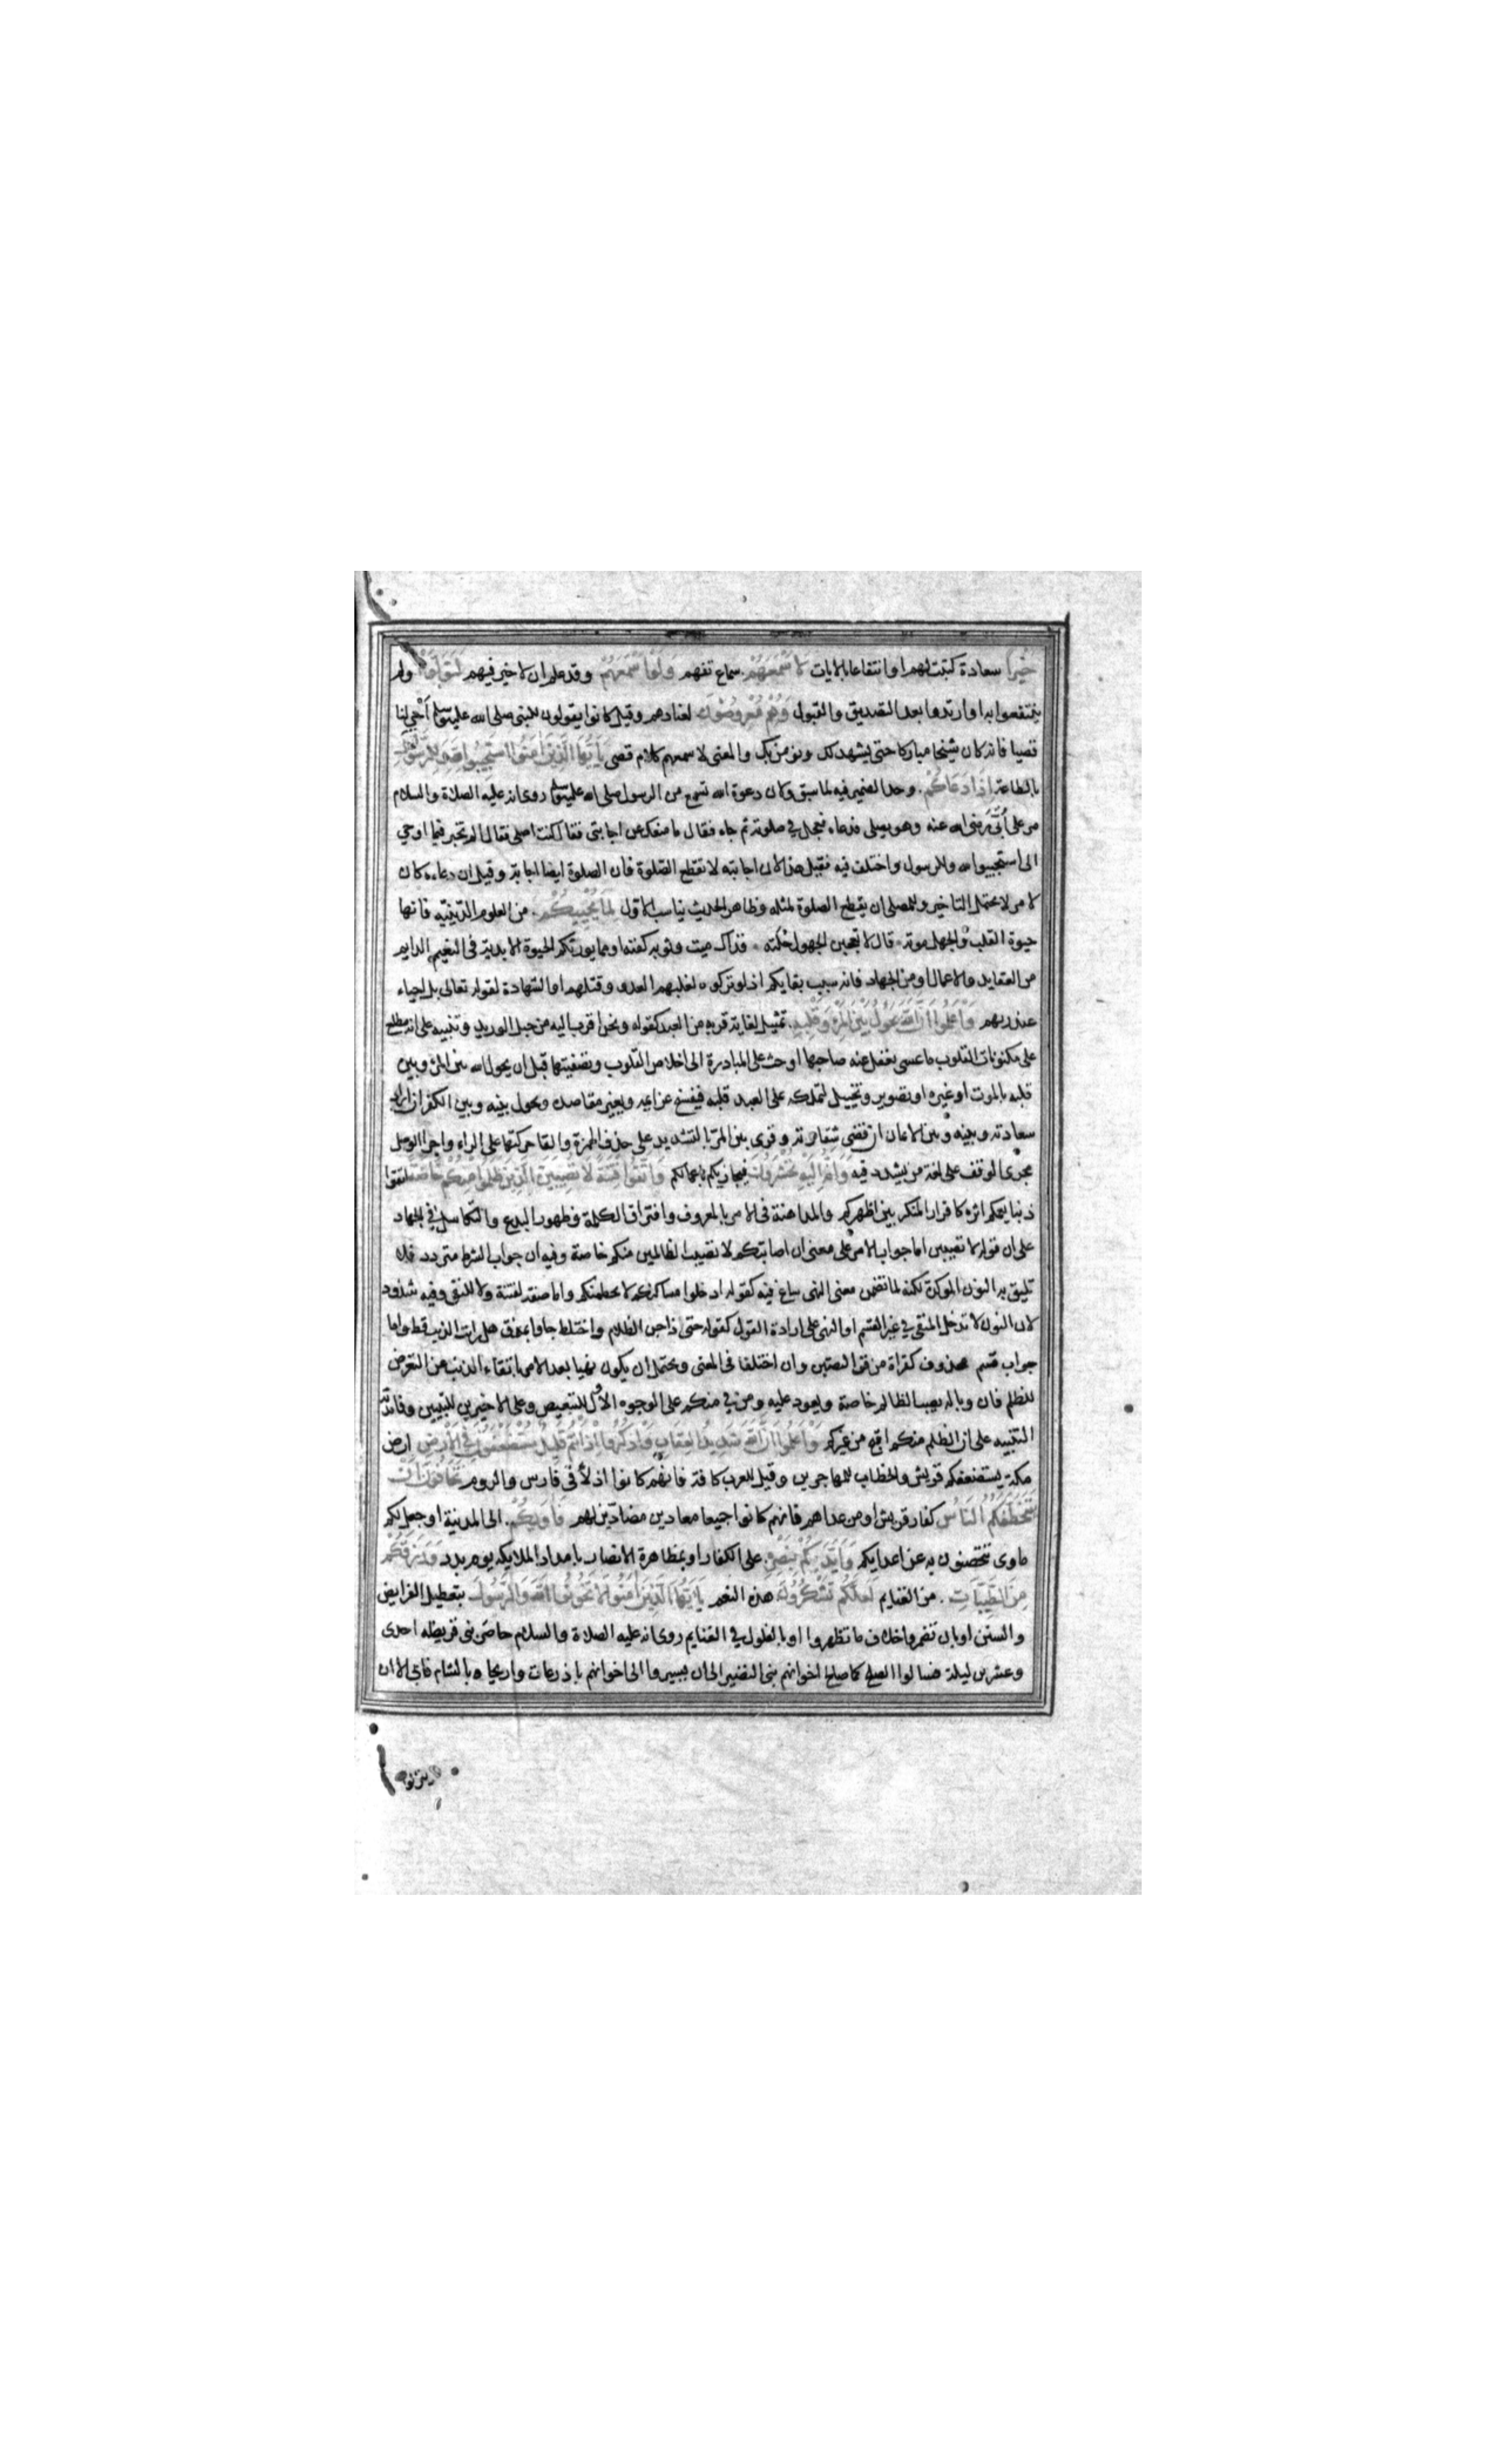 خيرا سعادة كتبت لهم او انتفاعا بالايات لاسمعهم سماع تفهم ولو اسمعهم وقد علم ان لا خير فيهم لتولوا ولم
ينتفعوا به او ارتدوا بعد التصديق والقبول وهم معرضون لعنادهم وقيل كانوا يقولون للنبى صلى الله عليه وسلم احي لنا
قصيا فانه كان شيخا مباركا حتى يشهد لك ونؤمن بك والمعنى لاسمعهم كلام قصى يا ايها الذين امنوا استجيبوا لله وللرسول
بالطاعة اذا دعاكم وحد الضمير فيه لما سبق وكان دعوة الله تسمع من الرسول صلى الله عليه وسلم روى انه عليه الصلاة والسلام
مر على أبى رضى الله عنه وهو يصلى فدعاه فعجل في صلوته ثم جاء فقال ما منعك عن اجابتى فقال كنت اصلى فقال الم تخبر فيما اوحي
الى استجيبوا لله وللرسول واختلف فيه فقيل هذا لان اجابته لا تقطع الصلوة فان الصلوة ايضا اجابة وقيل ان دعاءه كان
لامر لا يحتمل التاخير وللمصلى ان يقطع الصلوة لمثله وظاهر الحديث يناسب الاول لما يحييكم من العلوم الدينيه فانها
حيوة القلب والجهل موته قال لا تعجبن الجهول حلته فذاك ميت وثوبه كفنه او مما يورثكم الحيوة الابدية فى النعيم الدايم
من العقايد والاعمال او من الجهاد فانه سبب بقايكم اذ لو تركوه لغلبهم العدو وقتلهم او الشهادة لقوله تعالى بل احياء
عند ربهم واعلموا ان الله يحول بين المرء وقلبه تمثيل لغاية قربه من العبد كقوله ونحن اقرب اليه من حبل الوريد وتنبيه على انه مطلع
على مكنونات القلوب ما عسى يغفل عنه صاحبها او حث على المبادرة الى اخلاص القلوب وتصفيتها قبل ان يحول الله بين المرء وبين
قلبه بالموت او غيره او تصوير وتخييل لتملكه على العبد قلبه فيفسخ عزايمه ويغير مقاصده ويحول بينه وبين الكفر ان اراد
سعادته وبينه وبين الايمان ان قضى شقاوته وقرى بين المر بالتشديد على حذف الهمزة والقا حركتها على الراء واجرا الوصل
مجرى الوقف على لغة من يشدد فيه وانه اليه تحشرون فيجازيكم باعمالكم واتقوا فتنة لا تصيبن الذين ظلموا منكم خاصة اتقوا
ذنبا يعمكم اثره كاقرار المنكر بين اظهركم والمداهنة فى الامر بالمعروف وافتراق الكلمة وظهور البدع والتكاسل في الجهاد
على ان قوله لا تصيبن اما جواب الامر على معنى ان اصابتكم لا تصيب الظالمين منكم خاصة وفيه ان جواب الشرط متردد فلا
تليق به النون الموكدة لكنه لما تضمن معنى النهى ساغ فيه كقوله ادخلوا مساكنكم لا يحطمنكم واما صفة لفتنة ولا للنفى وفيه شذوذ
لان النون لا تدخل المنفى في غير القسم او النهى على ارادة القول كقوله حتى اذا جن الظلام واختلط جاوا بمذق هل رايت الذيب قط واما
جواب قسم محذوف كقراة من قرا لتصيبن وان اختلفا فى المعنى ويحتمل ان يكون نهيا بعد الامر باتقاء الذنب عن التعرض
للظلم فان وباله يصيب الظالم خاصة ويعود عليه ومن في منكم على الوجوه الاول للتبعيض وعلى الاخيرين للتبيين وفائدته
التنبيه على ان الظلم منكم اقبح من غيركم واعلموا ان الله شديد العقاب واذكروا اذ انتم قليل مستضعفون في الارض ارض
مكة يستضعفكم قريش والخطاب للمهاجرين وقيل للعرب كافة فانهم كانوا اذلا فى فارس والروم تخافون ان
يتخطفكم الناس كفار قريش او من عداهم فانهم كانوا جميعا معادين مضادين لهم فاويكم الى المدينة او جعل لكم
ماوى تتحصنون به عن اعدايكم وايدكم بنصره على الكفار او بمظاهرة الانصار بامداد الملايكه يوم بدر ورزقكم
من الطيبات من الغنايم لعلكم تشكرون هذه النعم يا ايها الذين امنوا لا تخونوا الله والرسول بتعطيل الفرايض
والسنن او بان تضمروا خلاف ما تظهروا او بالغلول في الغنايم روى انه عليه الصلاة والسلام حاصر بنى قريظه احدى
وعشرين ليلة فسالوا الصلح كما صلح اخوانهم بنى النضير الى ان يسيروا الى اخوانهم باذرعات واريحاء بالشام فابى الا ان
ينزلوا